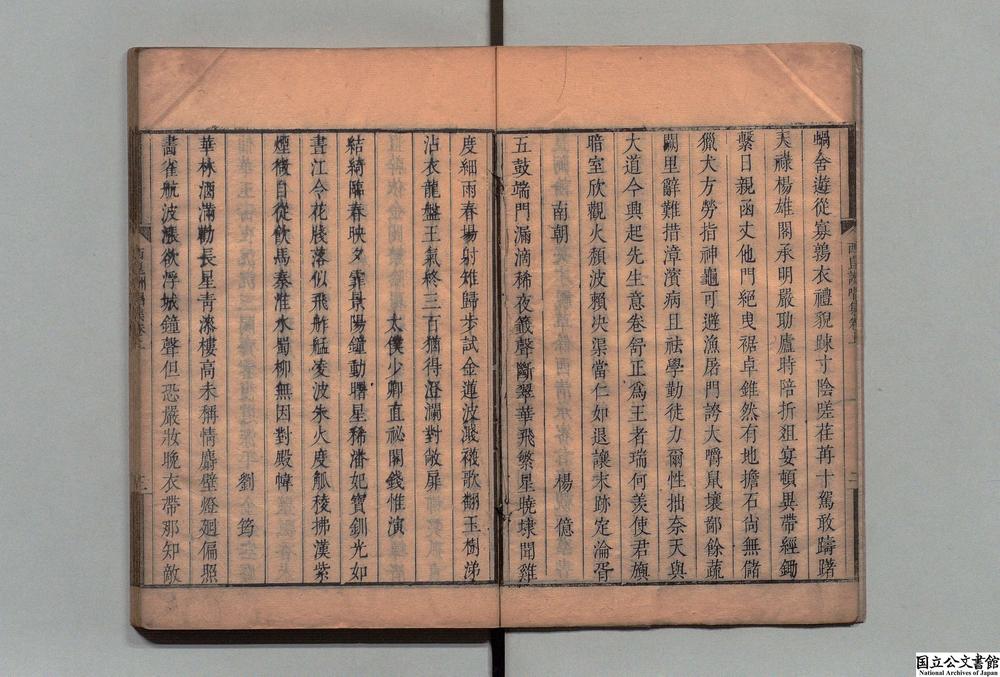 蝸舍遊從寡鶉衣禮貌踈寸陰嗟荏苒十駕敢躊躇
天祿楊雄閣承明嚴助廬時陪折俎宴頓異帶經鋤
繫日親函丈他門絕曳裾卓錐然有地擔石尙無儲
獵犬方勞指神龜可避漁屠門誇大嚼鼠壤鄙餘蔬
闕里辭難措漳濱病且祛學勤徒力爾性拙奈天與
大道今興起先生意卷舒正爲王者瑞何羨使君旟
暗室欣觀火頹波賴决渠當仁如退讓末跡定淪胥
南朝 楊億
五鼓端門漏滴稀夜籤聲斷翠華飛繁星曉埭聞雞
度細雨春場射雉歸步試金蓮波濺襪歌翻玉樹涕
沾衣龍盤王氣終三百猶得澄瀾對敞扉
太僕少卿直祕閣錢惟演
結綺臨春映夕霏景陽鐘動曙星稀潘妃寶釧光如
晝江令花牋落似飛舴艋凌波朱火度觚稜拂漢紫
煙微自從飲馬秦淮水蜀柳無因對殿幃
劉筠
華林酒滿勸長星青漆樓高未稱情麝壁燈廻偏照
晝雀航波漲欲浮城鐘聲但恐嚴妝晚衣帶那知敵
三
国立公文書館
National Archives of Japan